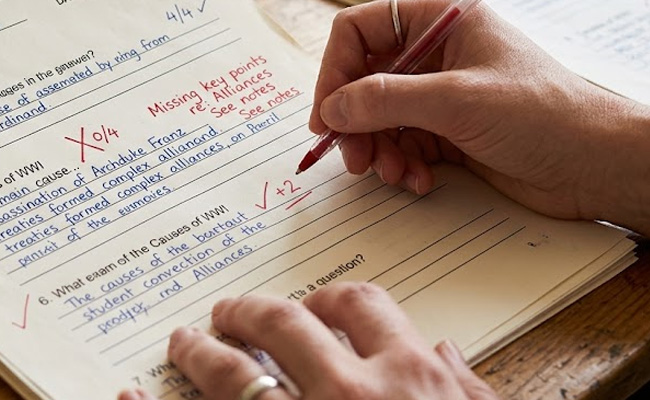 4/4 ✓
ages in the
se of assemated by ring from
rdinand.
Missing key points
re: Alliances
See notes
See notes
X 0/4
s of WWI
main cause...
assination of Archduke Franz
treaties formed complex allianand.
treaties formed complex alliances, on
of the
✓ +2
✓
6. What exam of the Causes of WWI
The causes of the
student convection of the
Alliances.
a question?
7.